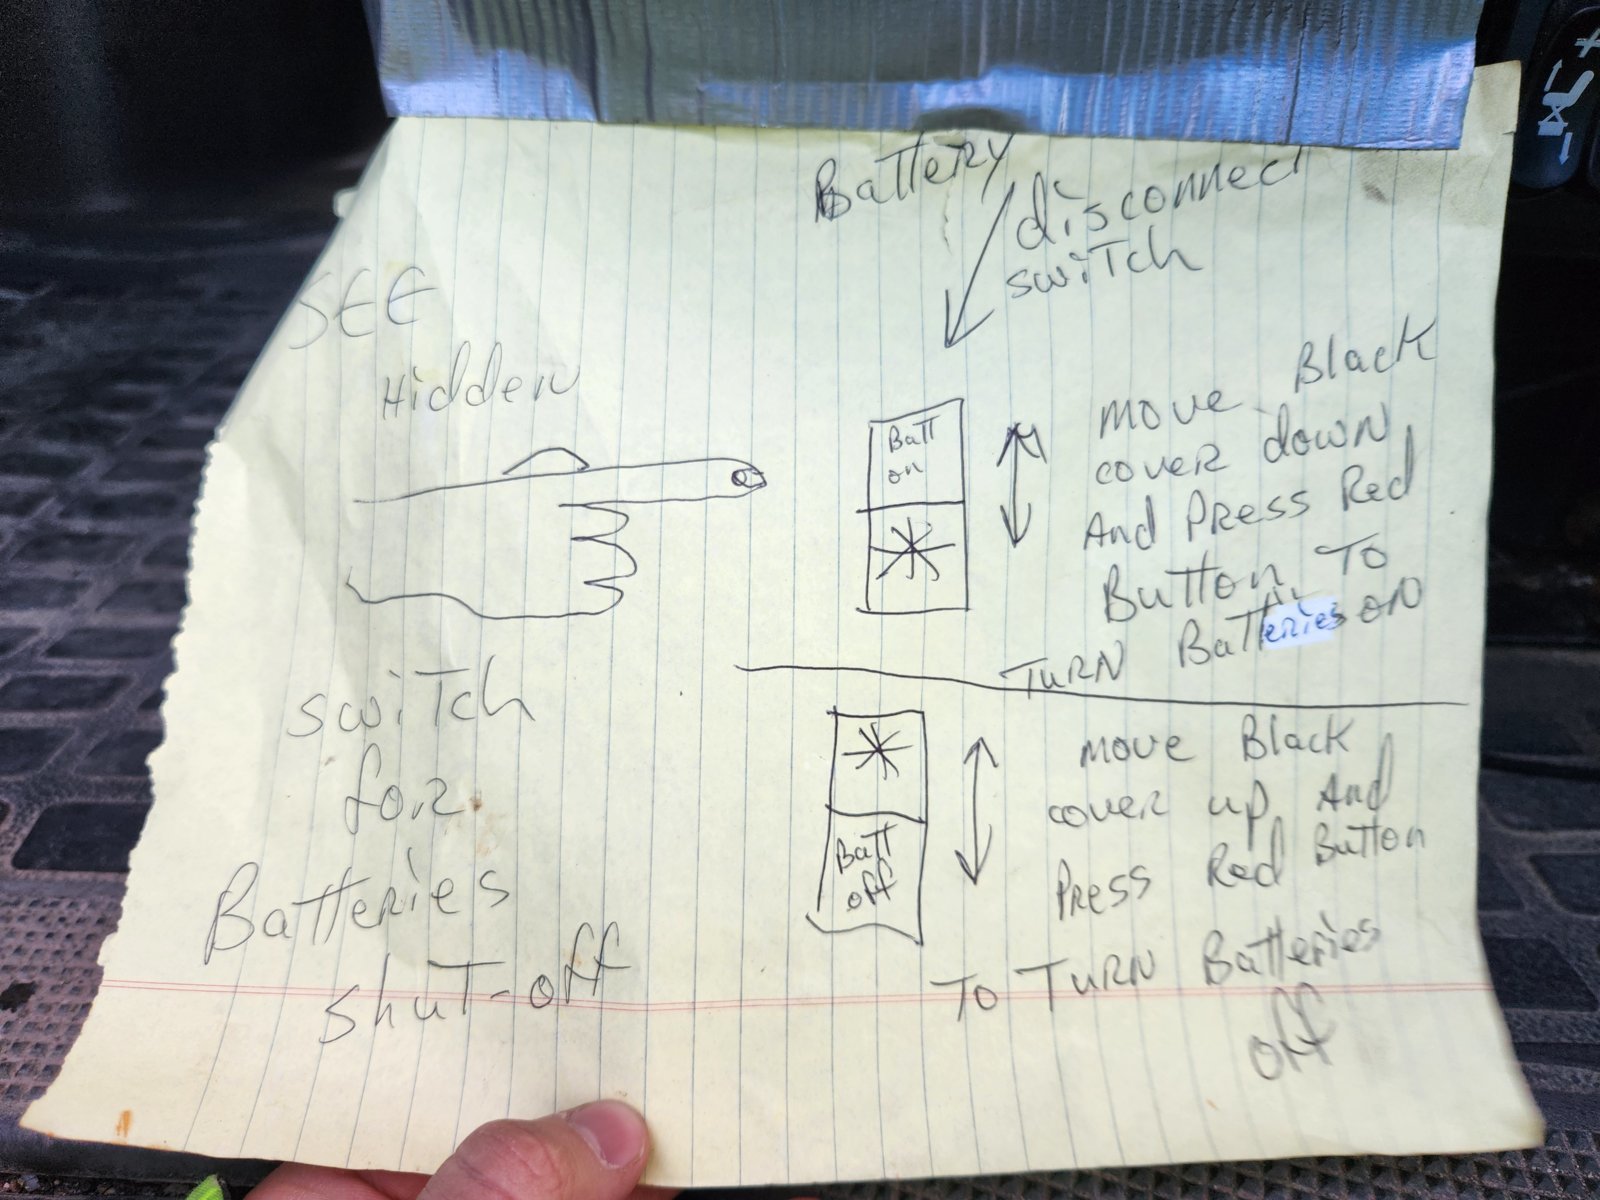 Battery
disconnect
switch
SEE
Hidden
switch
for
Batteries
shut-off
Batt
on
move Black
cover down
And Press Red
Button To
TURN Batteries on
Batt
off
move Black
cover up And
Press Red Button
To TURN Batteries
off